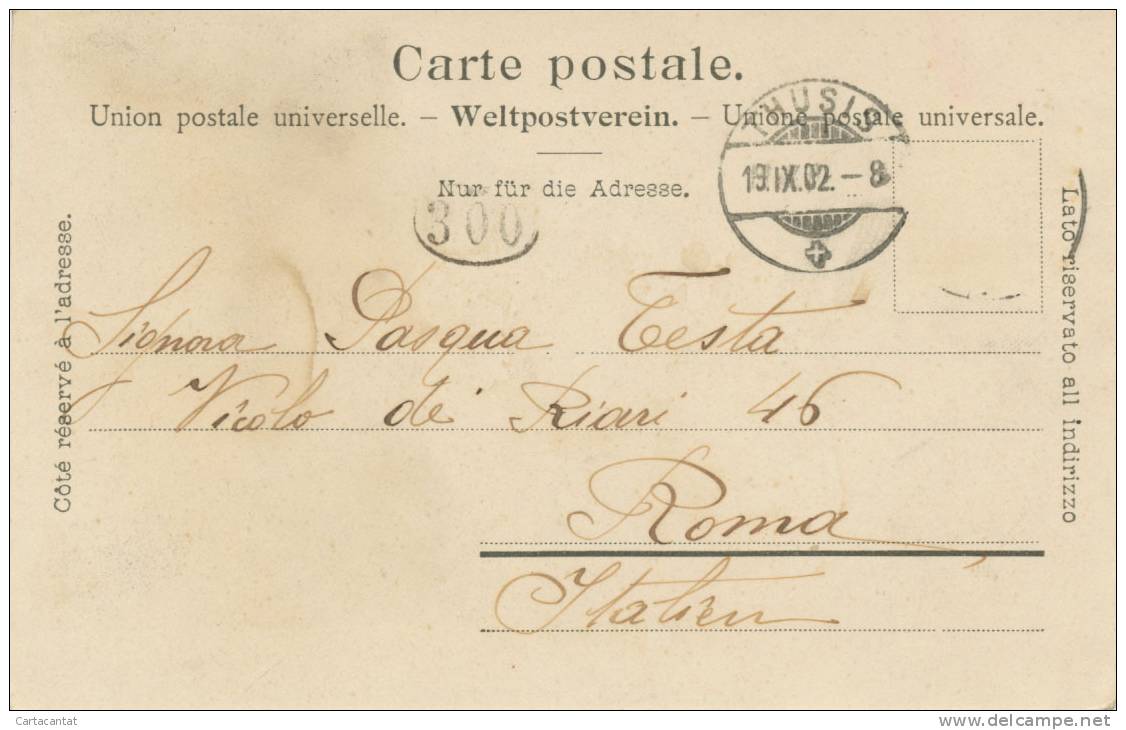 Carte postale.
Union postale universelle. – Weltpostverein. – Unione postale universale.
THUSIS
19.IX.02.–8
Nur für die Adresse.
300
Côté réservé à l'adresse.
Lato riservato all indirizzo
Signora Pasqua Testa
Vicolo de Riari 46
Roma
Italien
Cartacantat
www.delcampe.net